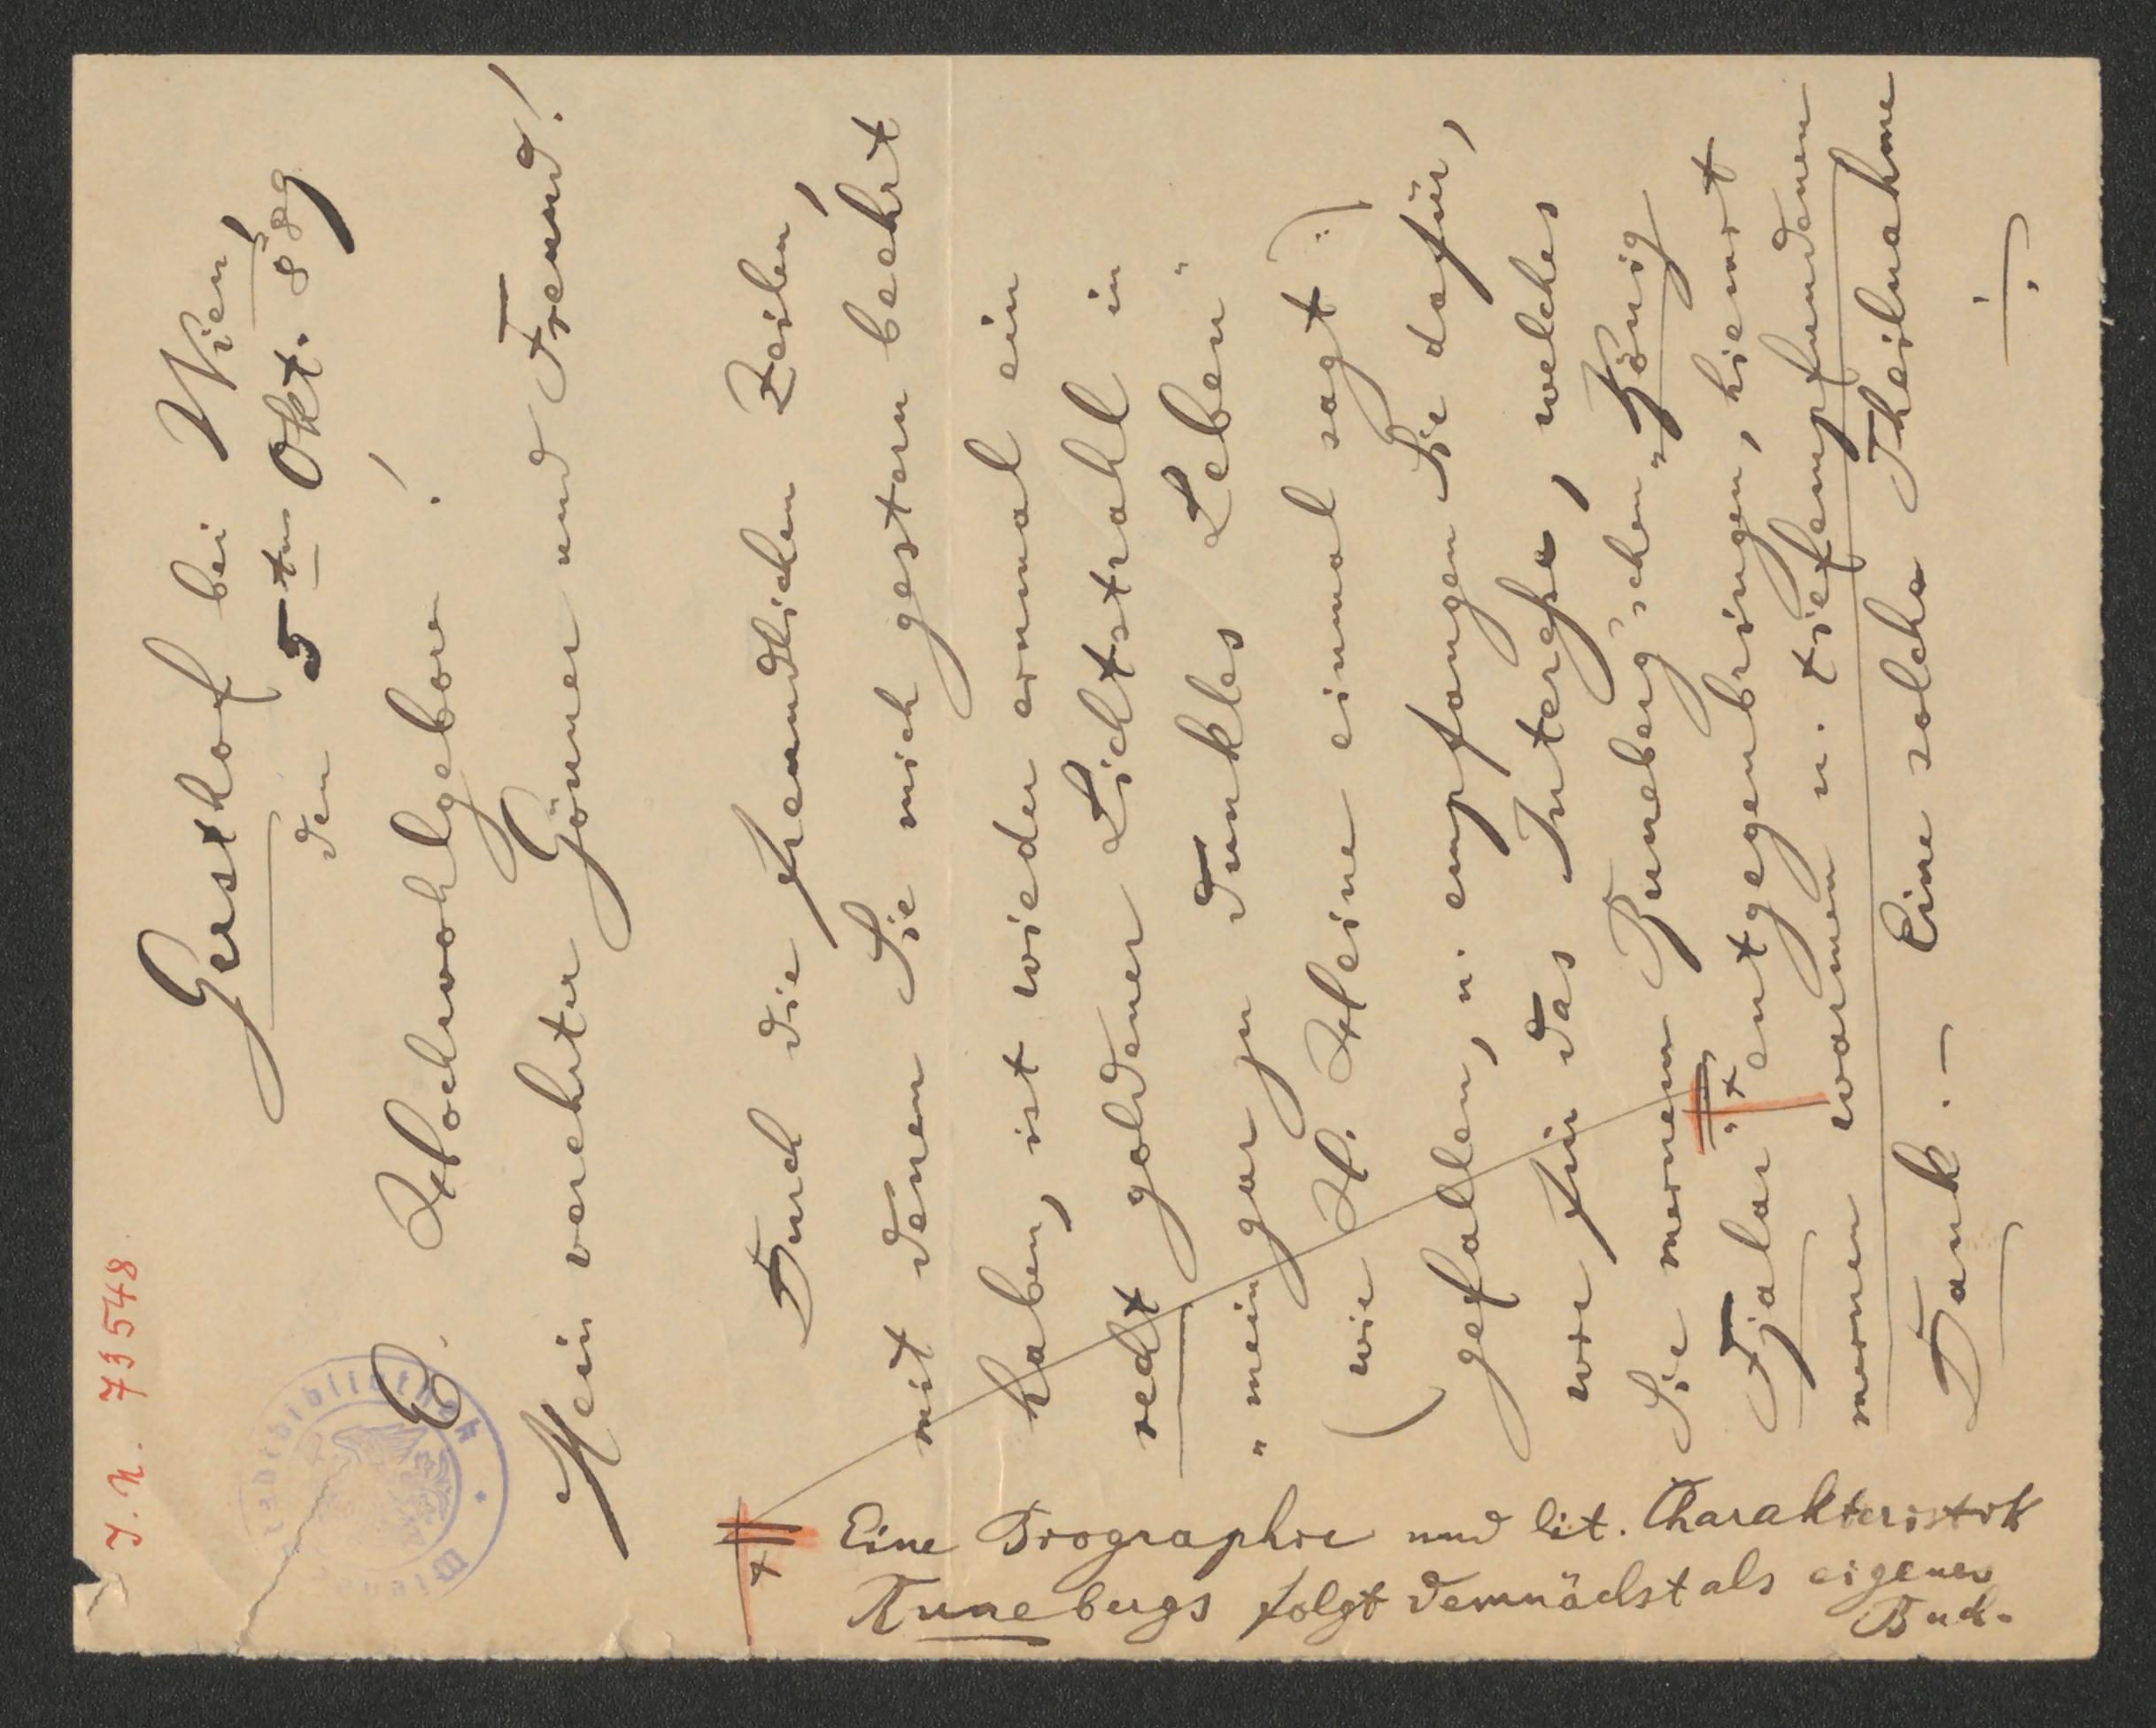 J. N. 73548
Stadtbibliothek
Wien
Gersthof bei Wien,
den 5ten Okt. 889
E. Hochwohlgeboren!
Mein verehrter Gönner und Freund!
Durch die freundlichen Zeilen,
mit denen Sie mich gestern beehrt
haben, ist wieder einmal ein
recht goldener Lichtstrahl in
„mein gar zu dunkles Leben“
(wie H. Heine einmal sagt.)
gefallen, u. empfangen Sie dafür,
wie für das Intereße, welches
Sie meinem Runeberg'schen „König
Fjalar“ + entgegenbringen, hiemit
meinen warmen u. tiefempfundenen
Dank. — Eine solche Theilnahme
+ Eine Biographie und lit. Charakteristik
Runebergs folgt demnächst als eigenes
Buch.